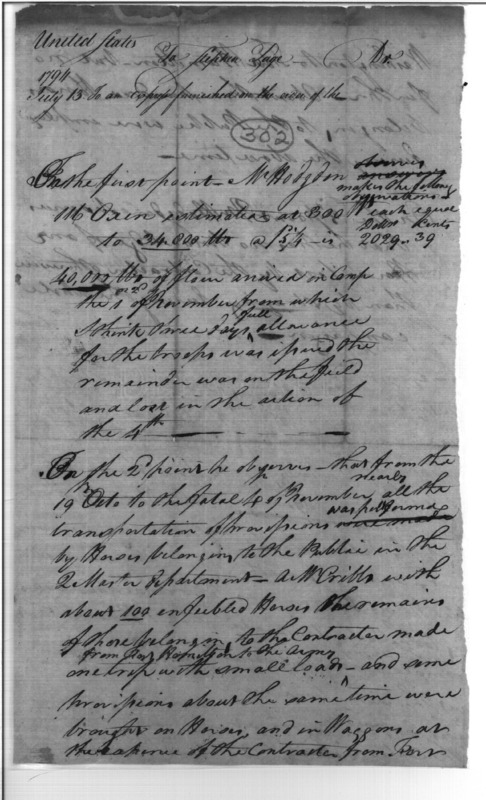 United States
To Stephen Page Dr.
1794
July 13 To an express furnished on the view of the
302
On the first point - Mr Hodgdon answers
makes the following
observations
116 Oxen estimated at 300 lb each equal
Dollars Cents
to 34.000 lbs @ is 2029..39
40,000 lbs of flour arrived in Camp
or 2d
the 1 of November from which
full
I think three days allowance
for the troops was issued the
remainder was on the field
and lost in the action of
the 4th
On the 2d point he observes - that from the
nearly
19 Octo to the fatal 4 of November all the
was performed
transportation of provisions were made
by Horses belonging to the Public in the
Q Master department - A Mr Cribbs with
about 100 enfeebled Horses the remains
of those belonging to the Contractor made
from Fort Hamilton to the Army
one trip with small loads - and some
provisions about the same time were
brought on Horses, and in Waggons at
the expence of the Contractor from Fort